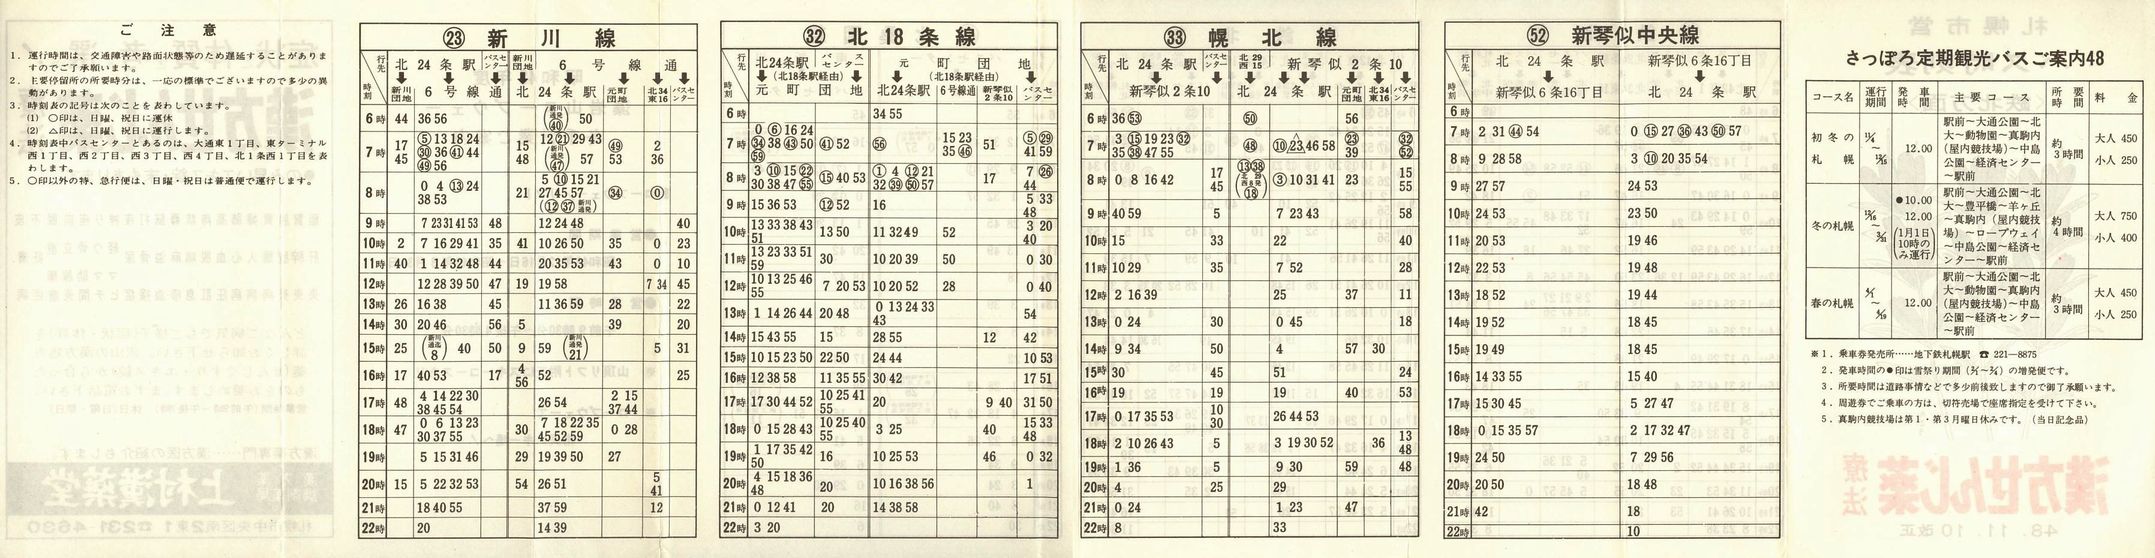 ご注意
1. 運行時間は、交通障害や路面状態等のため遅延することがありま
すのでご了承願います。
2. 主要停留所の所要時分は、一応の標準でございますので多少の異
動があります。
3. 時刻表の記号は次のことを表わしています。
(1) ○印は、日曜、祝日に運休
(2) △印は、日曜、祝日に運行します。
4. 時刻表中バスセンターとあるのは、大通東1丁目、東ターミナル
西1丁目、西2丁目、西3丁目、西4丁目、北1条西1丁目を表
わします。
5. ○印以外の特、急行便は、日曜・祝日は普通便で運行します。
㉓ 新川線
行先 北24条駅 バスセンター 新川団地 6号線通
時刻 新川団地 6号線通 北24条駅 元町団地 北34東16 バスセンター
6時 44 36 56 (新川通発㊵) 50
7時 17 45 ⑤ 13 18 24 ㉚ 36 ㊶ 44 ㊾ 56 15 48 12 ㉑ 29 43 (新川通発㊼) 57 ㊾ 53 2 36
8時 0 4 ⑬ 24 38 53 21 5 ⑩ 15 21 27 45 57 (⑫ ㊲ 新川通発) ㉞ ⓪
9時 7 23 31 41 53 48 12 24 48 40
10時 2 7 16 29 41 35 41 10 26 50 35 0 23
11時 40 1 14 32 48 44 20 35 53 43 0 10
12時 12 28 39 50 47 19 19 58 7 34 45
13時 26 16 38 45 11 36 59 28 22
14時 30 20 46 56 5 39 20
15時 25 (新川通迄8) 40 50 9 59 (新川通発21) 5 31
16時 17 40 53 17 4 56 52 25
17時 48 4 14 22 30 38 45 54 26 54 2 15 37 44
18時 47 0 6 13 23 30 37 55 30 7 18 22 35 45 52 59 0 28
19時 5 15 31 46 29 19 39 50 27
20時 15 5 22 32 53 54 26 51 5 41
21時 18 40 55 37 59 12
22時 20 14 39
㉜ 北18条線
行先 北24条駅 バスセンター (北18条駅経由) 元町団地 (北18条駅経由)
時刻 元町団地 北24条駅 6号線通 新琴似2条10 バスセンター
6時 34 55
7時 0 ⑥ 16 24 ㉞ 38 ㊸ 50 59 ㊶ 52 56 15 23 35 ㊻ 51 ⑤ ㉙ 41 59
8時 3 ⑩ 15 ㉒ 30 38 47 55 ⑮ 40 53 ① 4 ⑫ 21 32 ㊴ 50 57 17 7 ㉖ 44
9時 15 36 53 ⑫ 52 16 5 33 48
10時 13 33 38 43 51 13 50 11 32 49 52 3 20 40
11時 13 23 33 51 59 30 10 20 39 50 0 30
12時 10 13 25 46 55 7 20 53 10 20 52 28 0 40
13時 1 14 26 44 20 48 0 13 24 33 43 54
14時 15 43 55 15 28 55 12 42
15時 10 15 23 50 22 50 24 44 10 53
16時 12 38 58 11 35 55 30 42 17 51
17時 17 30 44 52 10 25 41 55 20 9 40 31 50
18時 0 15 28 43 10 25 40 55 3 25 40 15 33 48
19時 1 17 35 42 50 16 10 25 53 46 0 32
20時 4 15 18 36 48 20 10 16 38 56 1
21時 0 12 41 20 14 38 58
22時 3 20
㉝ 幌北線
行先 北24条駅 バスセンター 北29西15 新琴似2条10
時刻 新琴似2条10 北24条駅 元町団地 北34東16 バスセンター
6時 36 53 50 56
7時 3 ⑮ 19 23 ㉜ 35 ㊳ 47 55 ㊽ ⑩ 23 46 58 △ ㉓ 39 ㉜ 52
8時 0 8 16 42 17 45 ⑬ ㊳ (北29西15発⑱) ③ 10 31 41 23 15 55
9時 40 59 5 7 23 43 58
10時 15 33 22 40
11時 10 29 35 7 52 28
12時 2 16 39 25 37 11
13時 0 24 30 0 45 18
14時 9 34 50 4 57 30
15時 30 45 51 24
16時 19 19 40 53
17時 0 17 35 53 10 30 26 44 53
18時 2 10 26 43 5 3 19 30 52 36 13 48
19時 1 36 5 9 30 59 48
20時 4 25 29
21時 0 24 1 23 47
22時 8 33
52 新琴似中央線
行先 北24条駅 新琴似6条16丁目
時刻 新琴似6条16丁目 北24条駅
6時
7時 2 31 ㊹ 54 0 ⑮ 27 ㊱ 43 ㊿ 57
8時 9 28 58 3 ⑩ 20 35 54
9時 27 57 24 53
10時 24 53 23 50
11時 20 53 19 46
12時 22 53 19 48
13時 18 52 19 44
14時 19 52 18 45
15時 19 49 18 45
16時 14 33 55 15 40
17時 15 30 45 5 27 47
18時 0 15 35 57 2 17 32 47
19時 24 50 7 29 56
20時 20 50 18 48
21時 42 18
22時 10
さっぽろ定期観光バスご案内48
コース名 運行期間 発車時間 主要コース 所要時間 料金
初冬の札幌 12.00 駅前〜大通公園〜北
大〜動物園〜真駒内
(屋内競技場)〜中島
公園〜経済センター
〜駅前 約3時間 大人 450 小人 250
冬の札幌 ●10.00 12.00 (1月1日10時のみ運行) 駅前〜大通公園〜北
大〜豊平橋〜羊ヶ丘
〜真駒内(屋内競技
場)〜ロープウェイ
〜中島公園〜経済セ
ンター〜駅前 約4時間 大人 750 小人 400
春の札幌 12.00 駅前〜大通公園〜北
大〜動物園〜真駒内
(屋内競技場)〜中島
公園〜経済センター
〜駅前 約3時間 大人 450 小人 250
※1. 乗車券発売所……地下鉄札幌駅 ☎ 221—8875
2. 発車時間の●印は雪祭り期間の増発便です。
3. 所要時間は道路事情などで多少前後致しますので御了承願います。
4. 周遊券でご乗車の方は、切符売場で座席指定を受けて下さい。
5. 真駒内競技場は第1・第3月曜日休みです。(当日記念品)